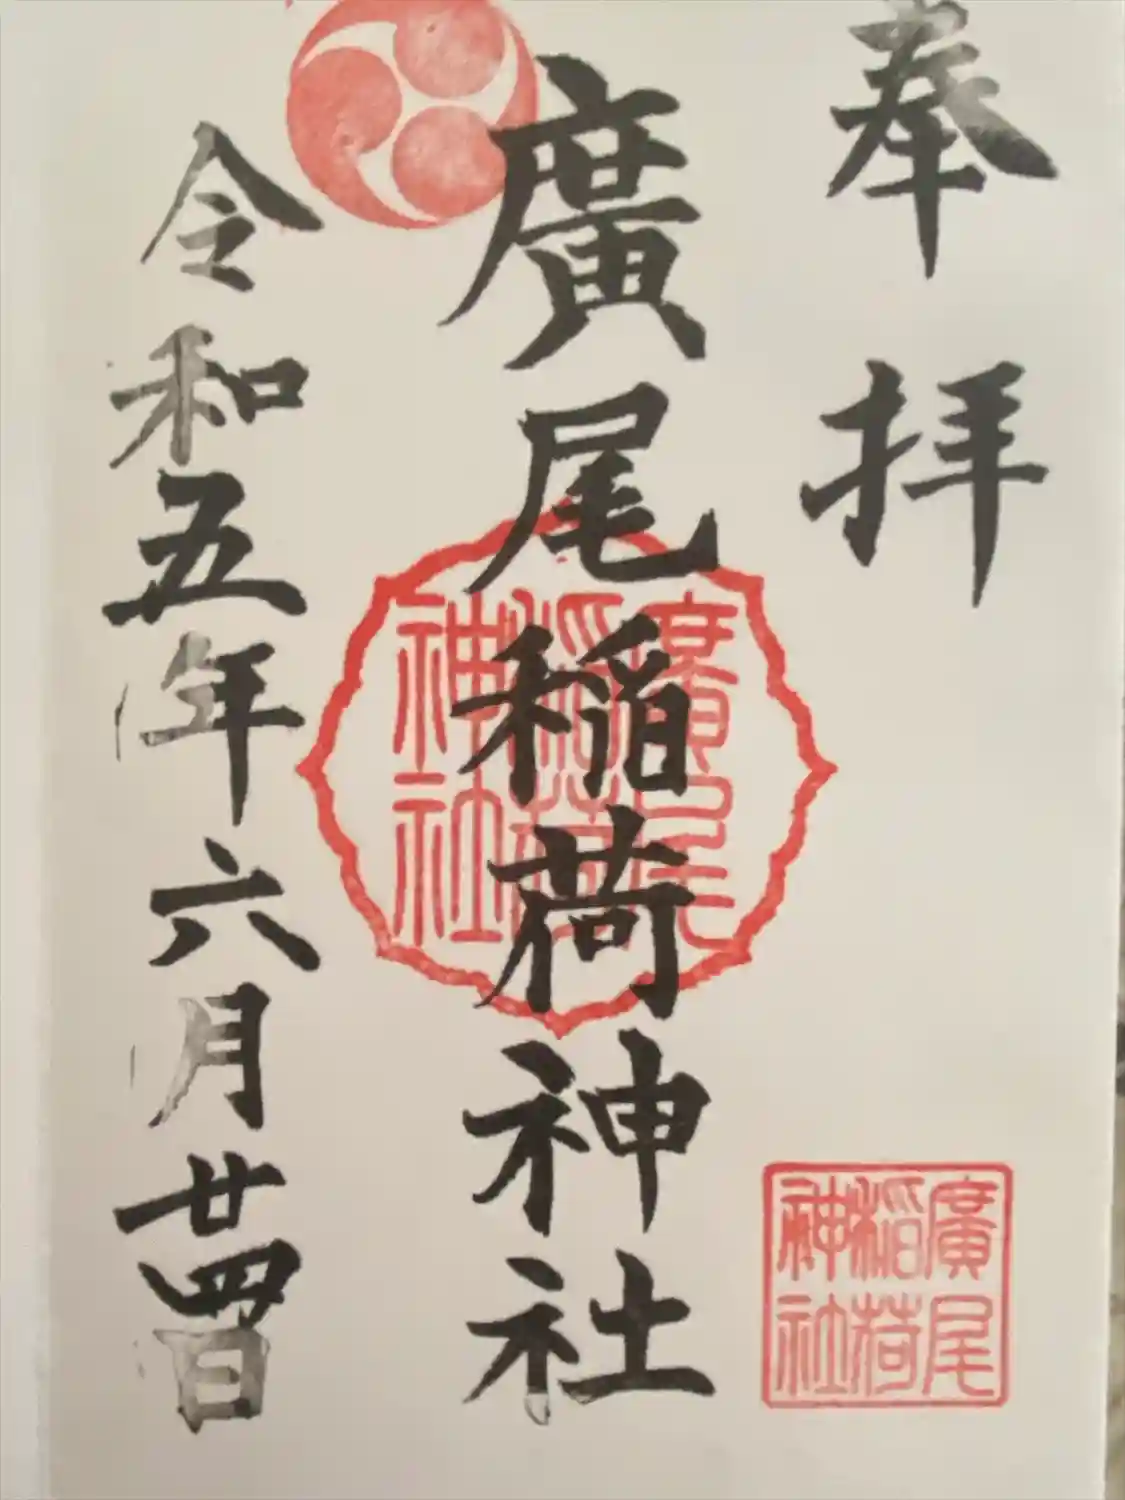 奉拝
廣尾稲荷神社
令和五年六月廿四日
廣尾
稲荷
神社
廣尾
稲荷
神社